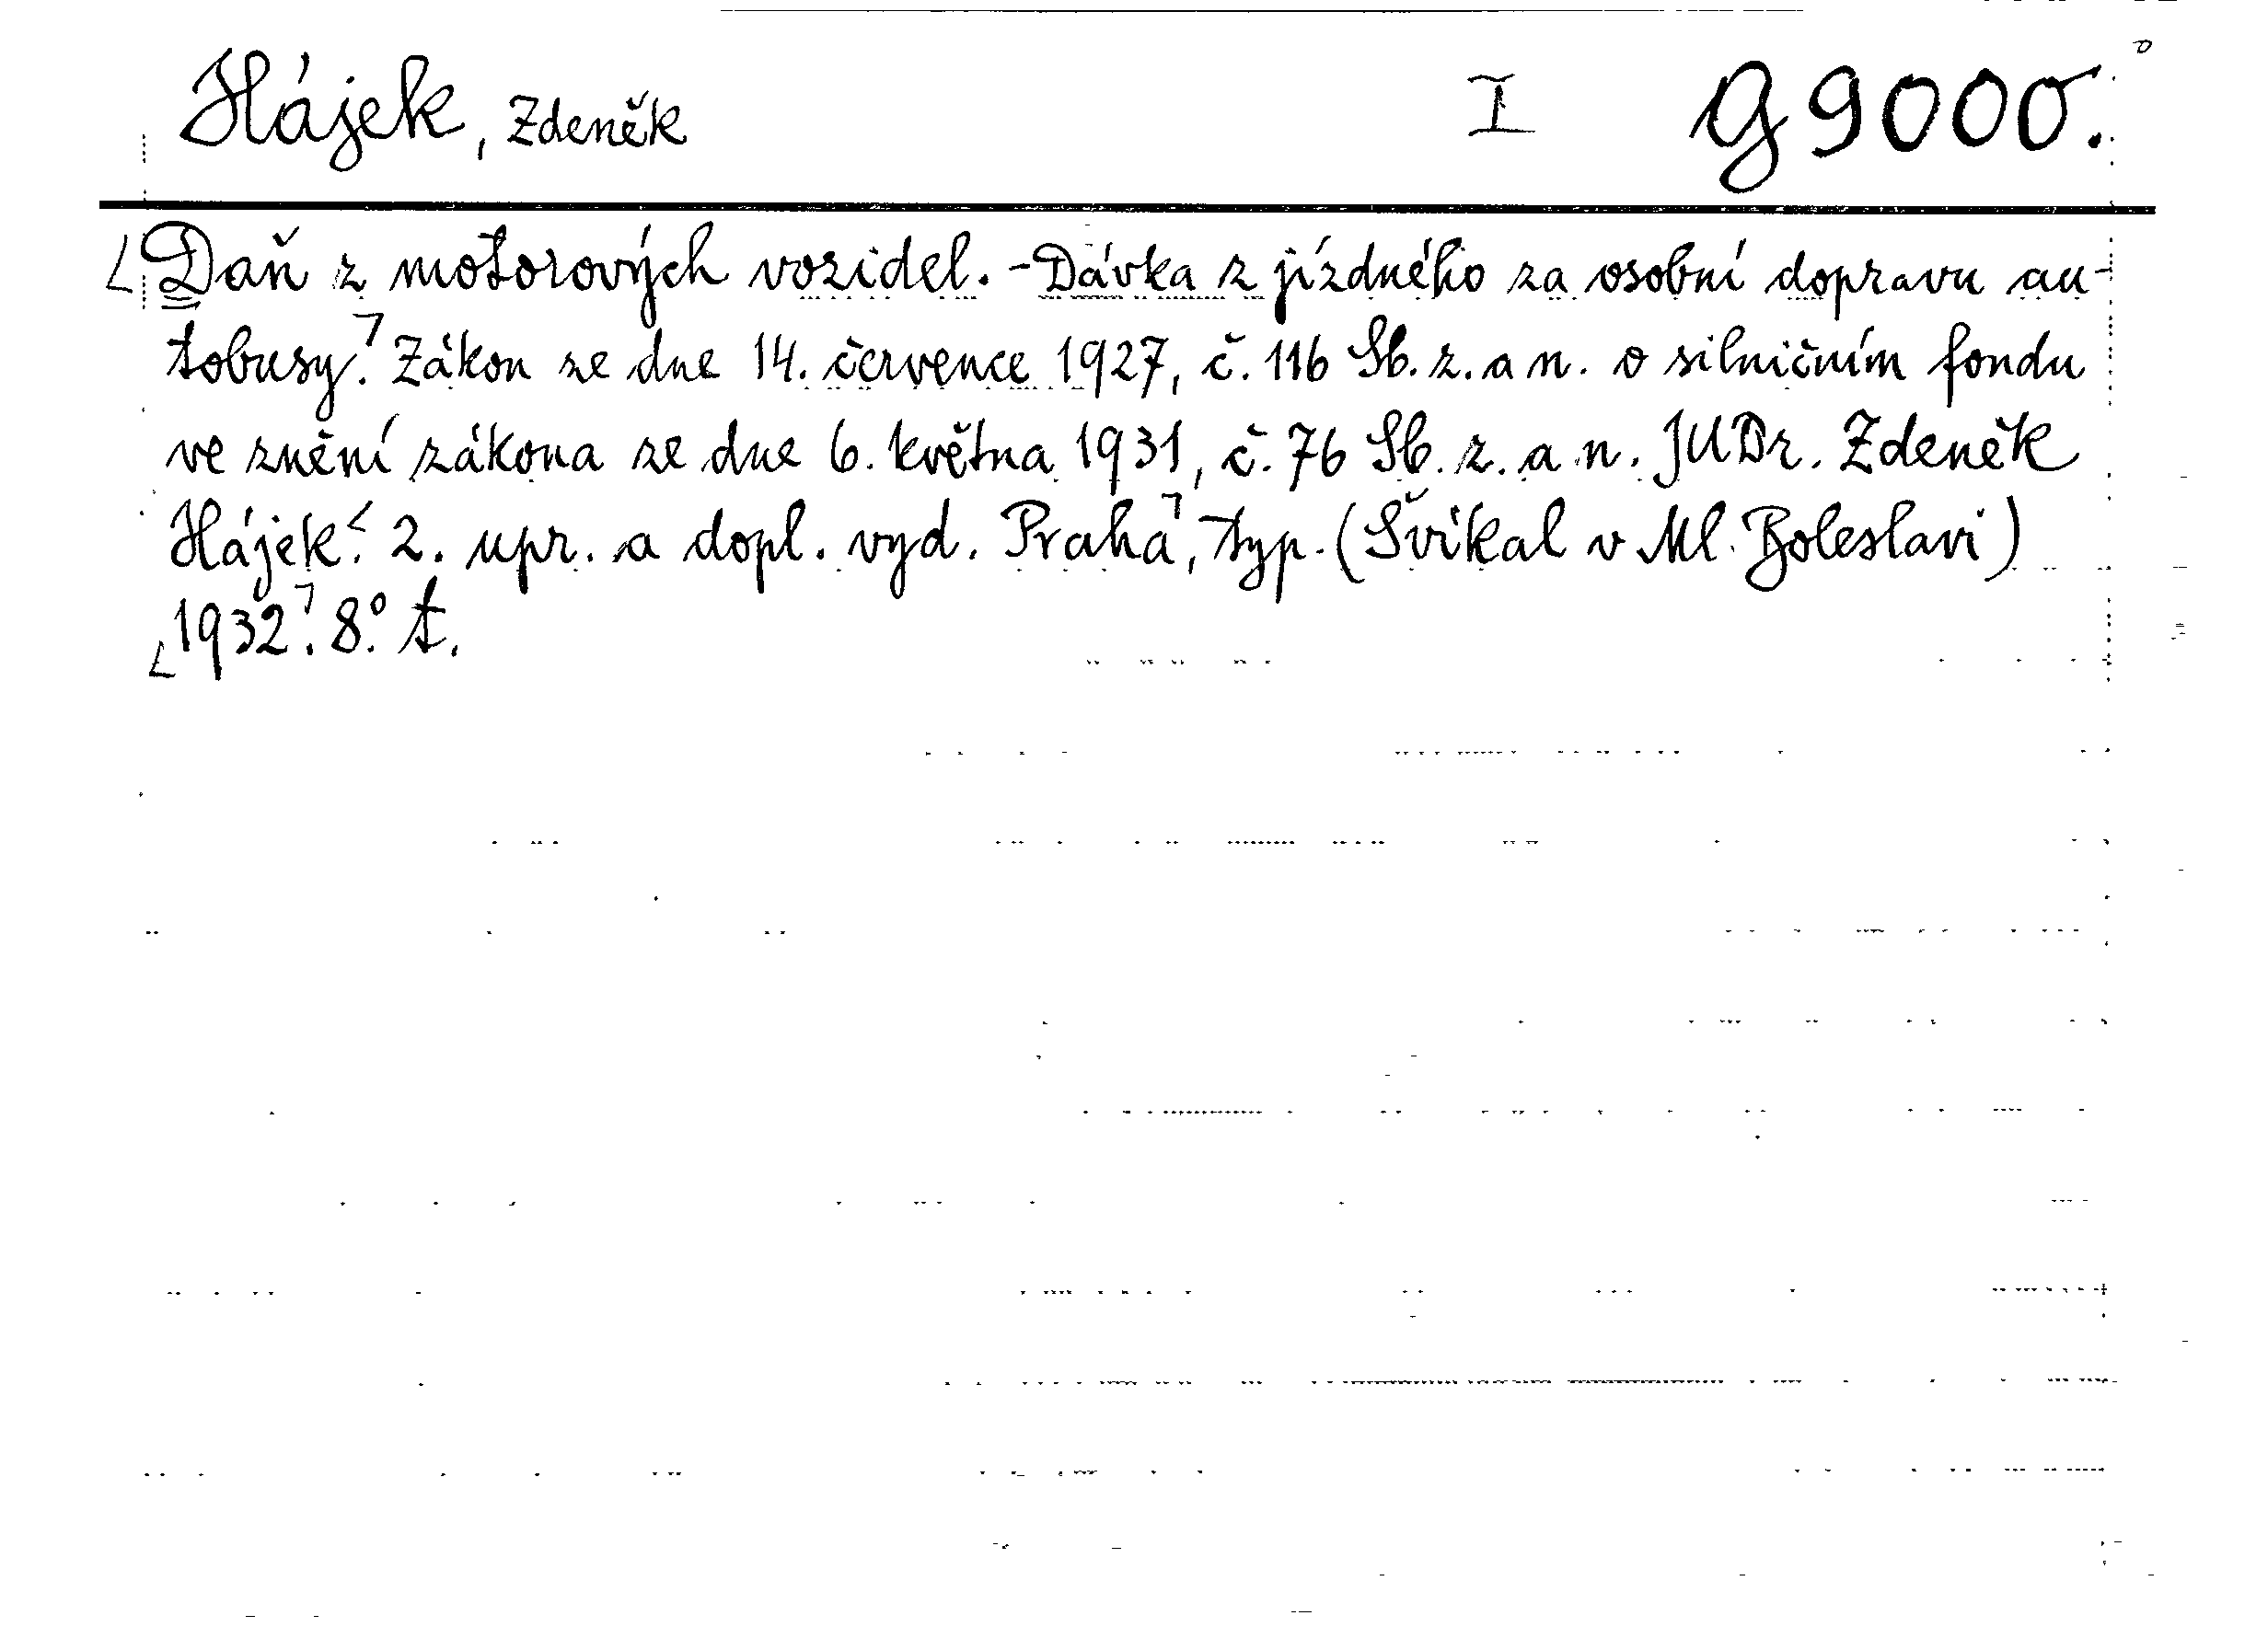 Hájek, Zdeněk I G 9000.
Daň z motorových vozidel. - Dávka z jízdného za osobní dopravu au-
tobusy. Zákon ze dne 14. července 1927, č. 116 Sb. z. a n. o silničním fondu
ve znění zákona ze dne 6. května 1931, č. 76 Sb. z. a n. JUDr. Zdeněk
Hájek. 2. upr. a dopl. vyd. Praha, typ. (Švikal v Ml. Boleslavi)
1932. 8.° t.